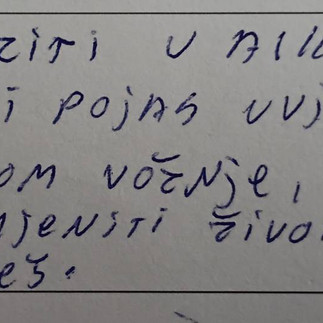 ziti u
i pojas uvj
om vožnje,
njeniti živo
eš.